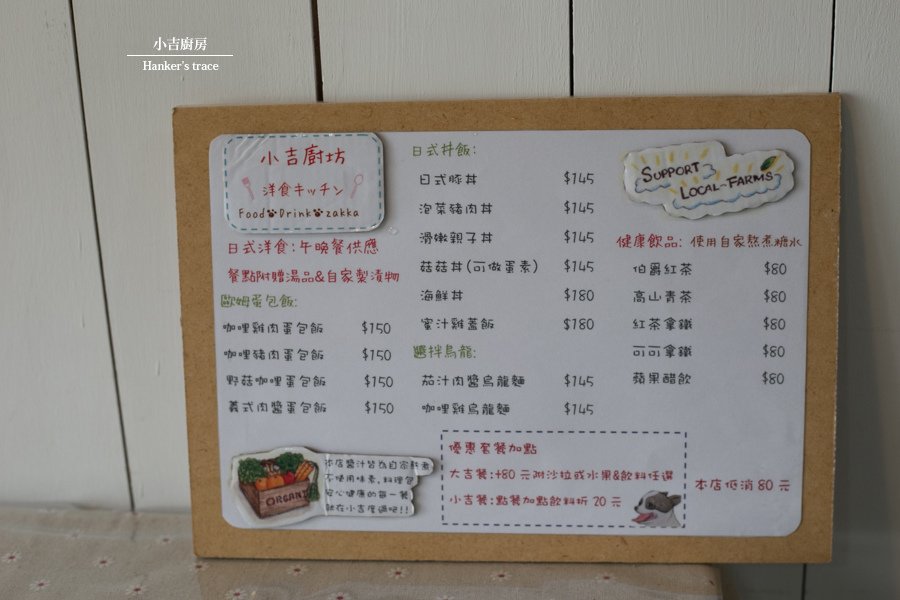 小吉廚房
Hanker's trace
小吉廚坊
洋食キッチン
Food Drink zakka
日式洋食:午晚餐供應
餐點附贈湯品&自家製漬物
歐姆蛋包飯:
咖哩雞肉蛋包飯 $150
咖哩豬肉蛋包飯 $150
野菇咖哩蛋包飯 $150
義式肉醬蛋包飯 $150
ORGANI
本店醬汁皆為自家熬煮
不使用味素,料理包
安心健康的每一餐
就在小吉度過吧!!
日式丼飯:
日式豚丼 $145
泡菜豬肉丼 $145
滑嫩親子丼 $145
菇菇丼(可做蛋素) $145
海鮮丼 $180
蜜汁雞蓋飯 $180
醬拌烏龍:
茄汁肉醬烏龍麵 $145
咖哩雞烏龍麵 $145
SUPPORT
LOCAL-FARMS
健康飲品: 使用自家熬煮糖水
伯爵紅茶 $80
高山青茶 $80
紅茶拿鐵 $80
可可拿鐵 $80
蘋果醋飲 $80
優惠套餐加點
大吉餐:+80 元附沙拉或水果&飲料任選
小吉餐:點餐加點飲料折 20 元
本店低消 80 元